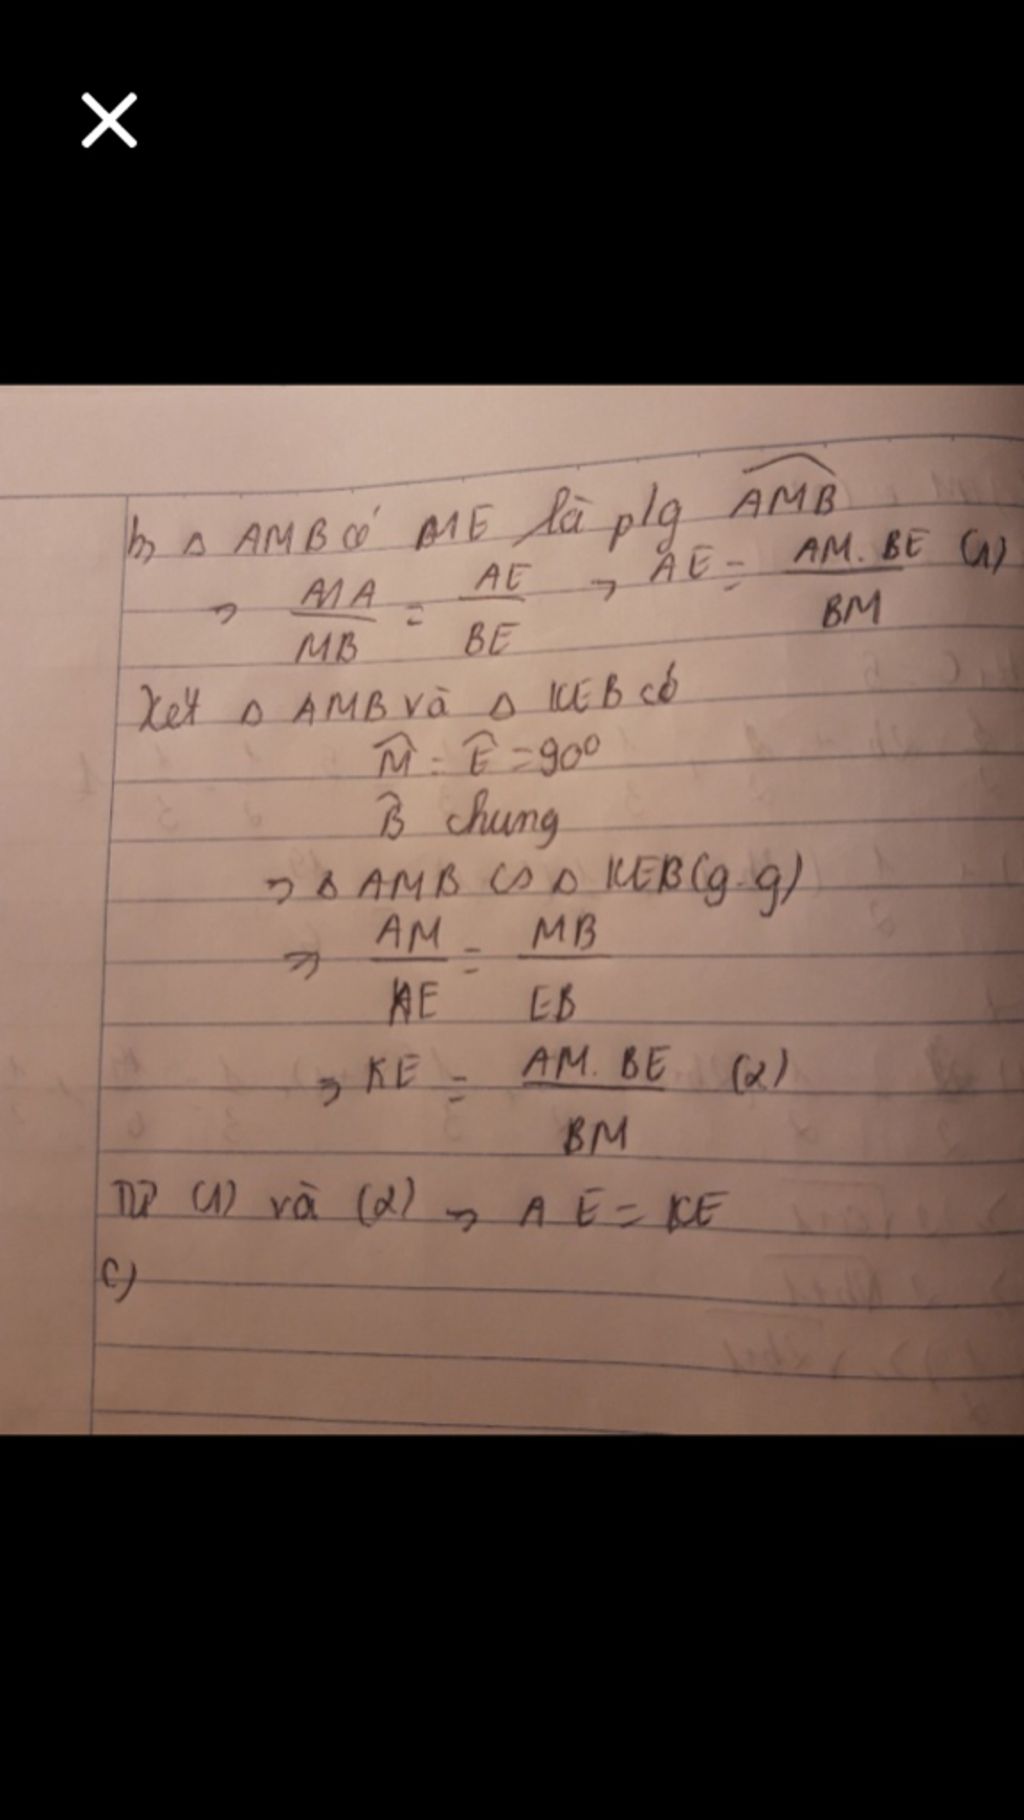 b, Δ AMB có ME là p/g \widehat{AMB}
⇒ \frac{MA}{MB} = \frac{AE}{BE} ⇒ AE = \frac{AM.BE}{BM} (1)
Xét Δ AMB và Δ KEB có
\widehat{M} = \widehat{E} = 90⁰
\widehat{B} chung
⇒ Δ AMB ∽ Δ KEB (g-g)
⇒ \frac{AM}{KE} = \frac{MB}{EB}
⇒ KE = \frac{AM.BE}{BM} (2)
Từ (1) và (2) ⇒ AE = KE
c)